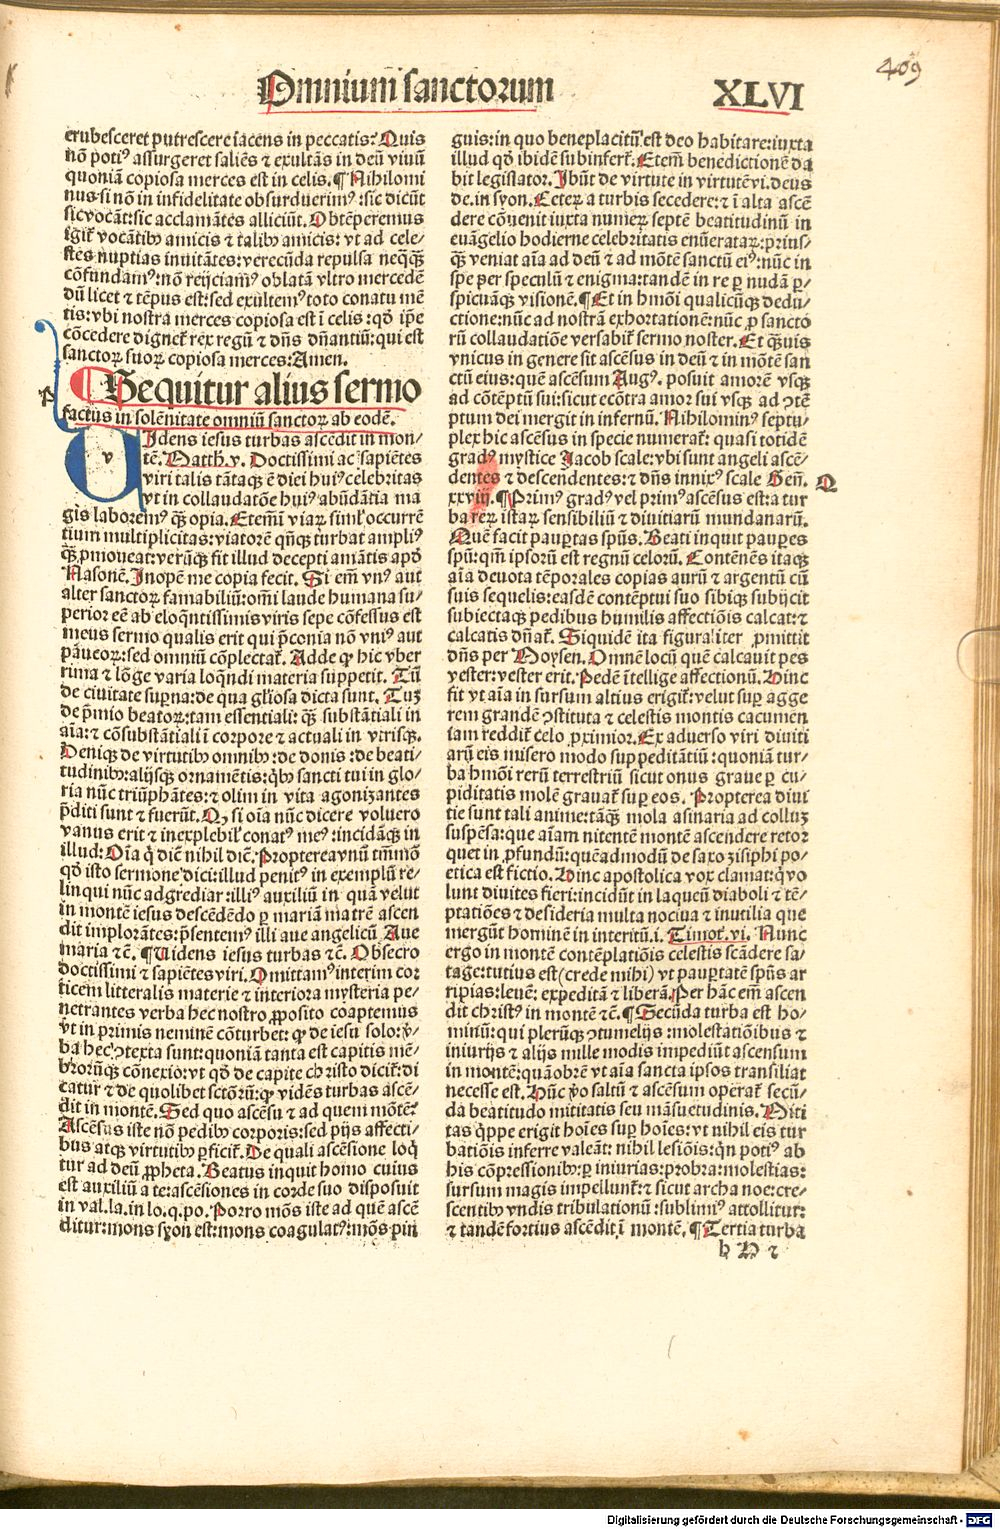 409
Omnium sanctorum
XLVI
erubesceret putrescere iacens in peccatis? Quis
nō potiꝰ assurgeret saliēs ⁊ exultās in deū viuū
quoniā copiosa merces est in celis. ¶ Nihilomi
nus si nō in infidelitate obsurduerimꝰ: sic dicūt
sic vocāt: sic acclamātes alliciūt. Obtēperemus
igit᷑ vocātibꝰ amicis ⁊ talibꝰ amicis: vt ad cele⸗
stes nuptias inuitātes: verecūda repulsa neqꝫqꝫ
cōfundamꝰ: nō reijciamꝰ oblatā vltro mercedē
dū licet ⁊ tēpus est: sed exultemꝰ toto conatu mē
tis: vbi nostra merces copiosa est ī celis: qď ip̄e
cōcedere dignet᷑ rex regū ⁊ dn̄s dn̄antiū: qui est
sanctoꝝ suoꝝ copiosa merces: Amen.
¶ Sequitur alius sermo
P
factus in solēnitate omniū sanctoꝝ ab eodē.
v
Uidens iesus turbas ascēdit in mon⸗
tē. Matth. v. Doctissimi ac sapiētes
viri talis tātaqꝫ ē diei huiꝰ celebritas
vt in collaudatōe huiꝰ abūdātia ma
gis laboremꝰ qꝫ̄ opia. Etem̄ viaꝝ simul occurrē
tium multiplicitas: viatorē qn̄qꝫ turbat ampliꝰ
qꝫ̄ ꝓmoueat: verūqꝫ fit illud decepti amātis apď
Nasonē. Inopē me copia fecit. Si em̄ vnꝰ aut
alter sanctoꝝ famabiliū: om̄i laude humana su⸗
perior eē ab eloq̄ntissimis viris sepe cōfessus est
meus sermo qualis erit qui p̄conia nō vniꝰ aut
paucoꝝ: sed omniū cōplectat᷑. Adde ꝙ hic vber
rima ⁊ lōge varia loq̄ndi materia suppetit. Tū
de ciuitate suꝑna: de qua gl̄iosa dicta sunt. Tuꝫ
de p̄mio beatoꝝ: tam essentiali: qꝫ̄ substātiali in
aīa: ⁊ cōsubstātiali ī corpore ⁊ actuali in virisqꝫ.
Deniqꝫ de virtutibꝰ omnibꝰ: de donis: de beati⸗
tudinibꝰ: alijsqꝫ ornamētis: qͥbꝰ sancti tui in glo⸗
ria nūc triūphātes: ⁊ olim in vita agonizantes
p̄diti sunt ⁊ fuerūt. Qꝫ si oīa nūc dicere voluero
vanus erit ⁊ inexplebil' conatꝰ meꝰ: incidāqꝫ in
illud: Oīa q̄ dicē nihil dicē. Propterea vnū tm̄mō
qď isto sermone dici: illud penitꝰ in exemplū re⸗
linqui nūc adgrediar: illiꝰ auxiliū in quā velut
in montē iesus descēdēdo ꝑ mariā matrē ascen
dit implorātes: p̄sentemꝰ illi aue angelicū. Aue
maria ⁊c̄. ¶ Uidens iesus turbas ⁊c̄. Obsecro
doctissimi ⁊ sapiētes viri. Omittamꝰ interim cor
ticem litteralis materie ⁊ interiora mysteria pe⸗
netrantes verba hec nostro ꝓposito coaptemus
vt in primis neminē cōturbet: ꝙ de iesu solo: v̄⸗
ba hec ꝯtexta sunt: quoniā tanta est capitis mē⸗
brorūqꝫ cōnexio: vt qď de capite christo dicit᷑: di
catur ⁊ de quolibet sctōrū: ꝙ vidēs turbas ascē⸗
dit in montē. Sed quo ascēsu ⁊ ad quem mōtē?
Ascēsus iste nō pedibꝰ corporis: sed pijs affecti⸗
bus atqꝫ virtutibꝰ ꝑficit᷑. De quali ascēsione loqͥ
tur ad deū ꝓpheta. Beatus inquit homo cuius
est auxiliū a te: ascēsiones in corde suo disposuit
in val. la. in lo. q. po. Porro mōs iste ad quē ascē
ditur: mons syon est: mons coagulatꝰ: mōs pin
guis: in quo beneplacitū est deo habitare: iuxta
illud qď ibidē subinfert᷑. Etem̄ benedictionē da
bit legislator. Ibūt de virtute in virtutē vi. deus
de. in syon. Eceteꝝ a turbis secedere: ⁊ ī alta ascē
dere cōuenit iuxta numeꝝ septē beatitudinū in
euāgelio hodierne celebritatis enūerataꝝ: prius⸗
qꝫ̄ veniat aīa ad deū ⁊ ad mōtē sanctū eiꝰ: nūc in
spe per speculū ⁊ enigma: tandē in re ꝑ nudā ꝑ⸗
spicuāqꝫ visionē. ¶ Et in hmōi qualicūqꝫ dedu⸗
ctione: nūc ad nostrā exhortationē: nūc ꝓ sancto
rū collaudatiōe versabit᷑ sermo noster. Et qꝫ̄uis
vnicus in genere sit ascēsus in deū ⁊ in mōtē san
ctū eius: quē ascēsum Augꝰ. posuit amorē vsqꝫ
ad cōtēptū sui: sicut ecōtra amor sui vsqꝫ ad ꝯtē
ptum dei mergit in infernū. Nihilominꝰ septu⸗
plex hic ascēsus in specie numerat᷑: quasi totidē
gradꝰ mystice Jacob scale: vbi sunt angeli ascē⸗
dentes ⁊ descendentes: ⁊ dn̄s innixꝰ scale Gen̄.
Q
xxviij. ¶ Primꝰ gradꝰ vel primꝰ ascēsus est: a tur
ba reꝝ istaꝝ sensibiliū ⁊ diuitiarū mundanarū.
Quē facit pauꝑtas spūs. Beati inquit pauꝑes
spū: qm̄ ipsorū est regnū celorū. Contēnēs itaqꝫ
aīa deuota tēporales copias aurū ⁊ argentū cū
suis sequelis: easdē contēptui suo sibiqꝫ subijcit
subiectaqꝫ pedibus humilis affectiōis calcat: ⁊
calcatis dn̄at᷑. Siquidē ita figuraliter ꝓmittit
dn̄s per Moysen. Omnē locū quē calcauit pes
vester: vester erit. Pedē ītellige affectionū. Hinc
fit vt aīa in sursum altius erigit᷑: velut suꝑ agge
rem grandē ꝯstituta ⁊ celestis montis cacumen
iam reddit᷑ celo ꝓximior. Ex aduerso viri diuiti
arū eis misero modo suppeditātiū: quoniā tur⸗
ba hmōi rerū terrestriū sicut onus graue ꝑ cu⸗
piditatis molē grauat᷑ suꝑ eos. Propterea diui
tie sunt tali anime: tāqꝫ mola asinaria ad colluꝫ
suspēsa: que aīam nitentē montē ascendere retor
quet in ꝓfundū: quēadmodū de saxo zisiphi po⸗
etica est fictio. Hinc apostolica vox clamat: q̄ vo
lunt diuites fieri: incidūt in laqueū diaboli ⁊ tē⸗
ptatiōes ⁊ desideria multa nociua ⁊ inutilia que
mergūt hominē in interitū. i. Timot᷑. vi. Nunc
ergo in montē contēplatiōis celestis scādere sa⸗
tage: tutius est (crede mihi) vt pauꝑtatē spūs ar
ripias: leuē: expeditā ⁊ liberā. Per hāc em̄ ascen
dit christꝰ in montē ⁊c̄. ¶ Secūda turba est ho⸗
minū: qui plerūqꝫ ꝯtumelijs: molestatiōibus ⁊
iniurijs ⁊ alijs mille modis impediūt ascensum
in montē: quāobrē vt aīa sancta ipsos transiliat
necesse est. Hūc v̄o saltū ⁊ ascēsum operat᷑ secū⸗
da beatitudo mititatis seu māsuetudinis. Miti
tas qͥppe erigit hoīes suꝑ hoīes: vt nihil eis tur
batiōis inferre valeāt: nihil lesiōis: qͥn potiꝰ ab
his cōpressionibꝰ: ꝑ iniurias: probra: molestias:
sursum magis impellunt᷑: ⁊ sicut archa noe: cre⸗
scentibꝰ vndis tribulationū: sublimiꝰ attollitur:
⁊ tandē fortius ascēdit ī montē. ¶ Tertia turba
h H 2
Digitalisierung gefördert durch die Deutsche Forschungsgemeinschaft - DFG